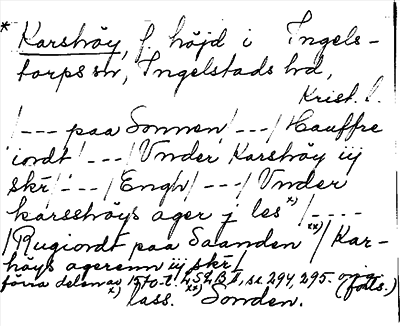 * Karshöy, f. höjd i Ingels-
torps sn, Ingelstads hd,
Krist. l.
/--- paa Sonnen /---/ Hauffre
iordt /---/ Vnder Karshöy iij
skr /---/ Engh /---/ Vnder
karsshöys ager j les x) /----
/ Rugiordt paa Saanden xx) / Kar-
höys agerenn iij skr /
förra delen av 1570-t. LSÆ B II, s. 294, 295.
x) lass. xx) Sonden. (forts.)